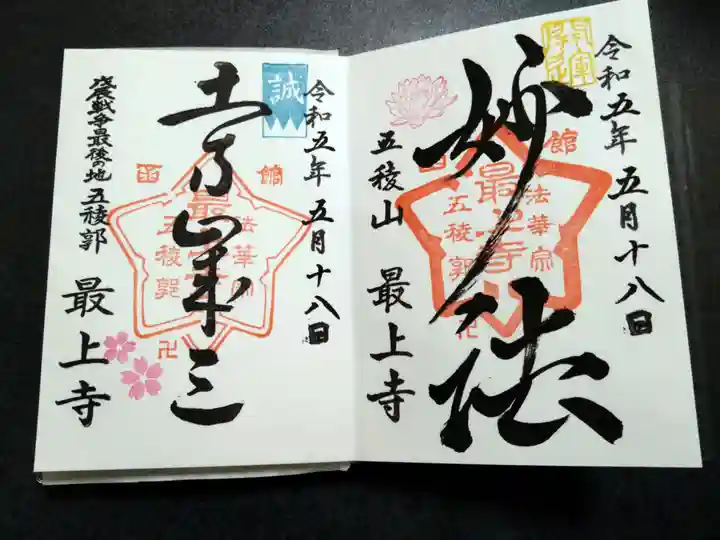 令和五年 五月十八日
妙法
五稜山 最上寺
函館
法華宗
最上寺
五稜郭
卍
誠
令和五年 五月十八日
土方歳三
戊辰戦争最後の地 五稜郭
最上寺
函館
法華宗
最上寺
五稜郭
卍